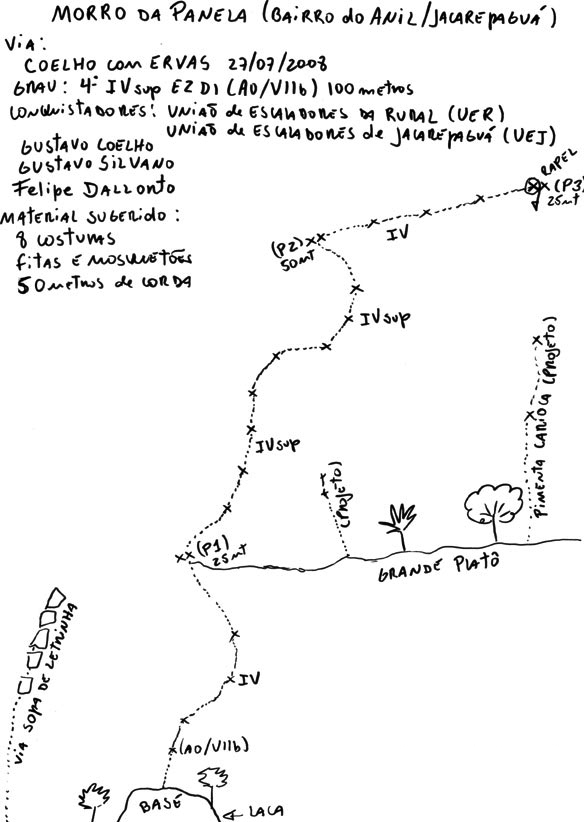 MORRO DA PANELA (BAIRRO do ANIL/JACAREPAGUÁ)
VIA:
COELHO com ERVAS 27/07/2008
GRAU: 4º IV sup E2 D1 (A0/VIIb) 100 metros
CONQUISTADORES: UNIAÕ de ESCALADORES DA RURAL (UER)
UNIAÕ de ESCALADORES de JACAREPAGUÁ (UEJ)
GUSTAVO COELHO
GUSTAVO SILVANO
Felipe DALLONTO
MATERIAL SUGERIDO:
8 COSTURAS
FITAS E MOSQUETÕES
50 metros de CORDA
RAPEL
(P3)
25 mt
(P2)
50 mt
IV
IV sup
IV sup
(PROJETO)
PIMENTA CARIOCA (PROJETO)
(P1)
25 mt
GRANDE PLATÔ
VIA SOPA DE LETRINHA
IV
(A0/VIIb)
BASE
LACA